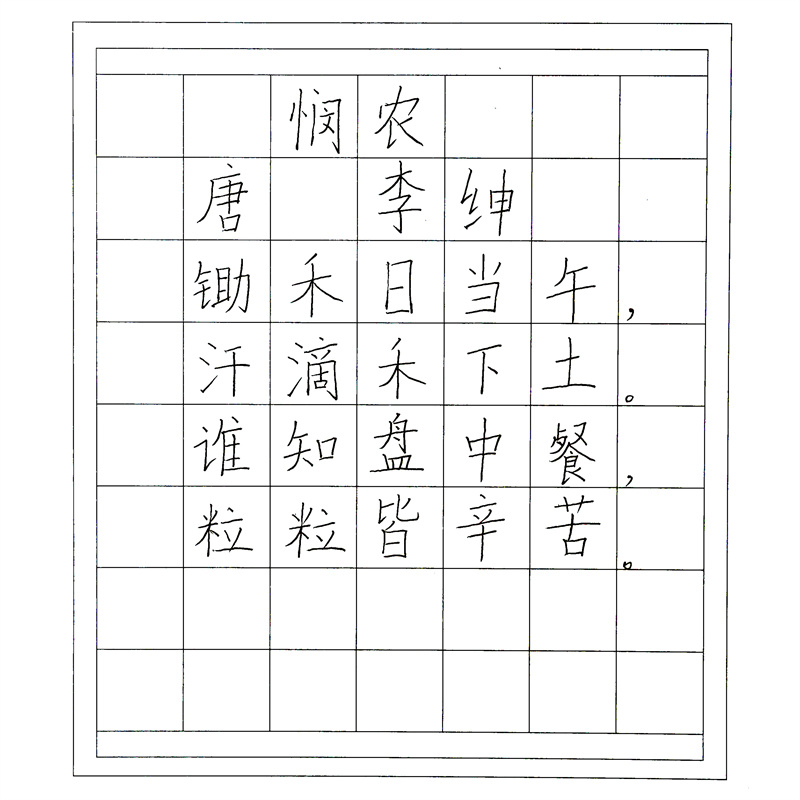 悯农
唐 李绅
锄禾日当午，
汗滴禾下土。
谁知盘中餐，
粒粒皆辛苦。